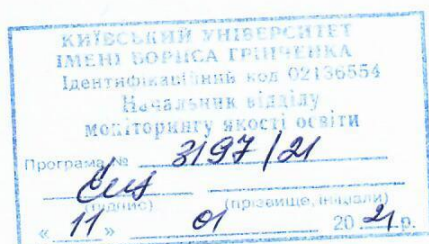 КИЇВСЬКИЙ УНІВЕРСИТЕТ
ІМЕНІ БОРИСА ГРІНЧЕНКА
Ідентифікаційний код 02136554
Начальник відділу
моніторингу якості освіти
Програма № 3197/21
(підпис) (прізвище, ініціали)
« 11 » 01 20 21 р.